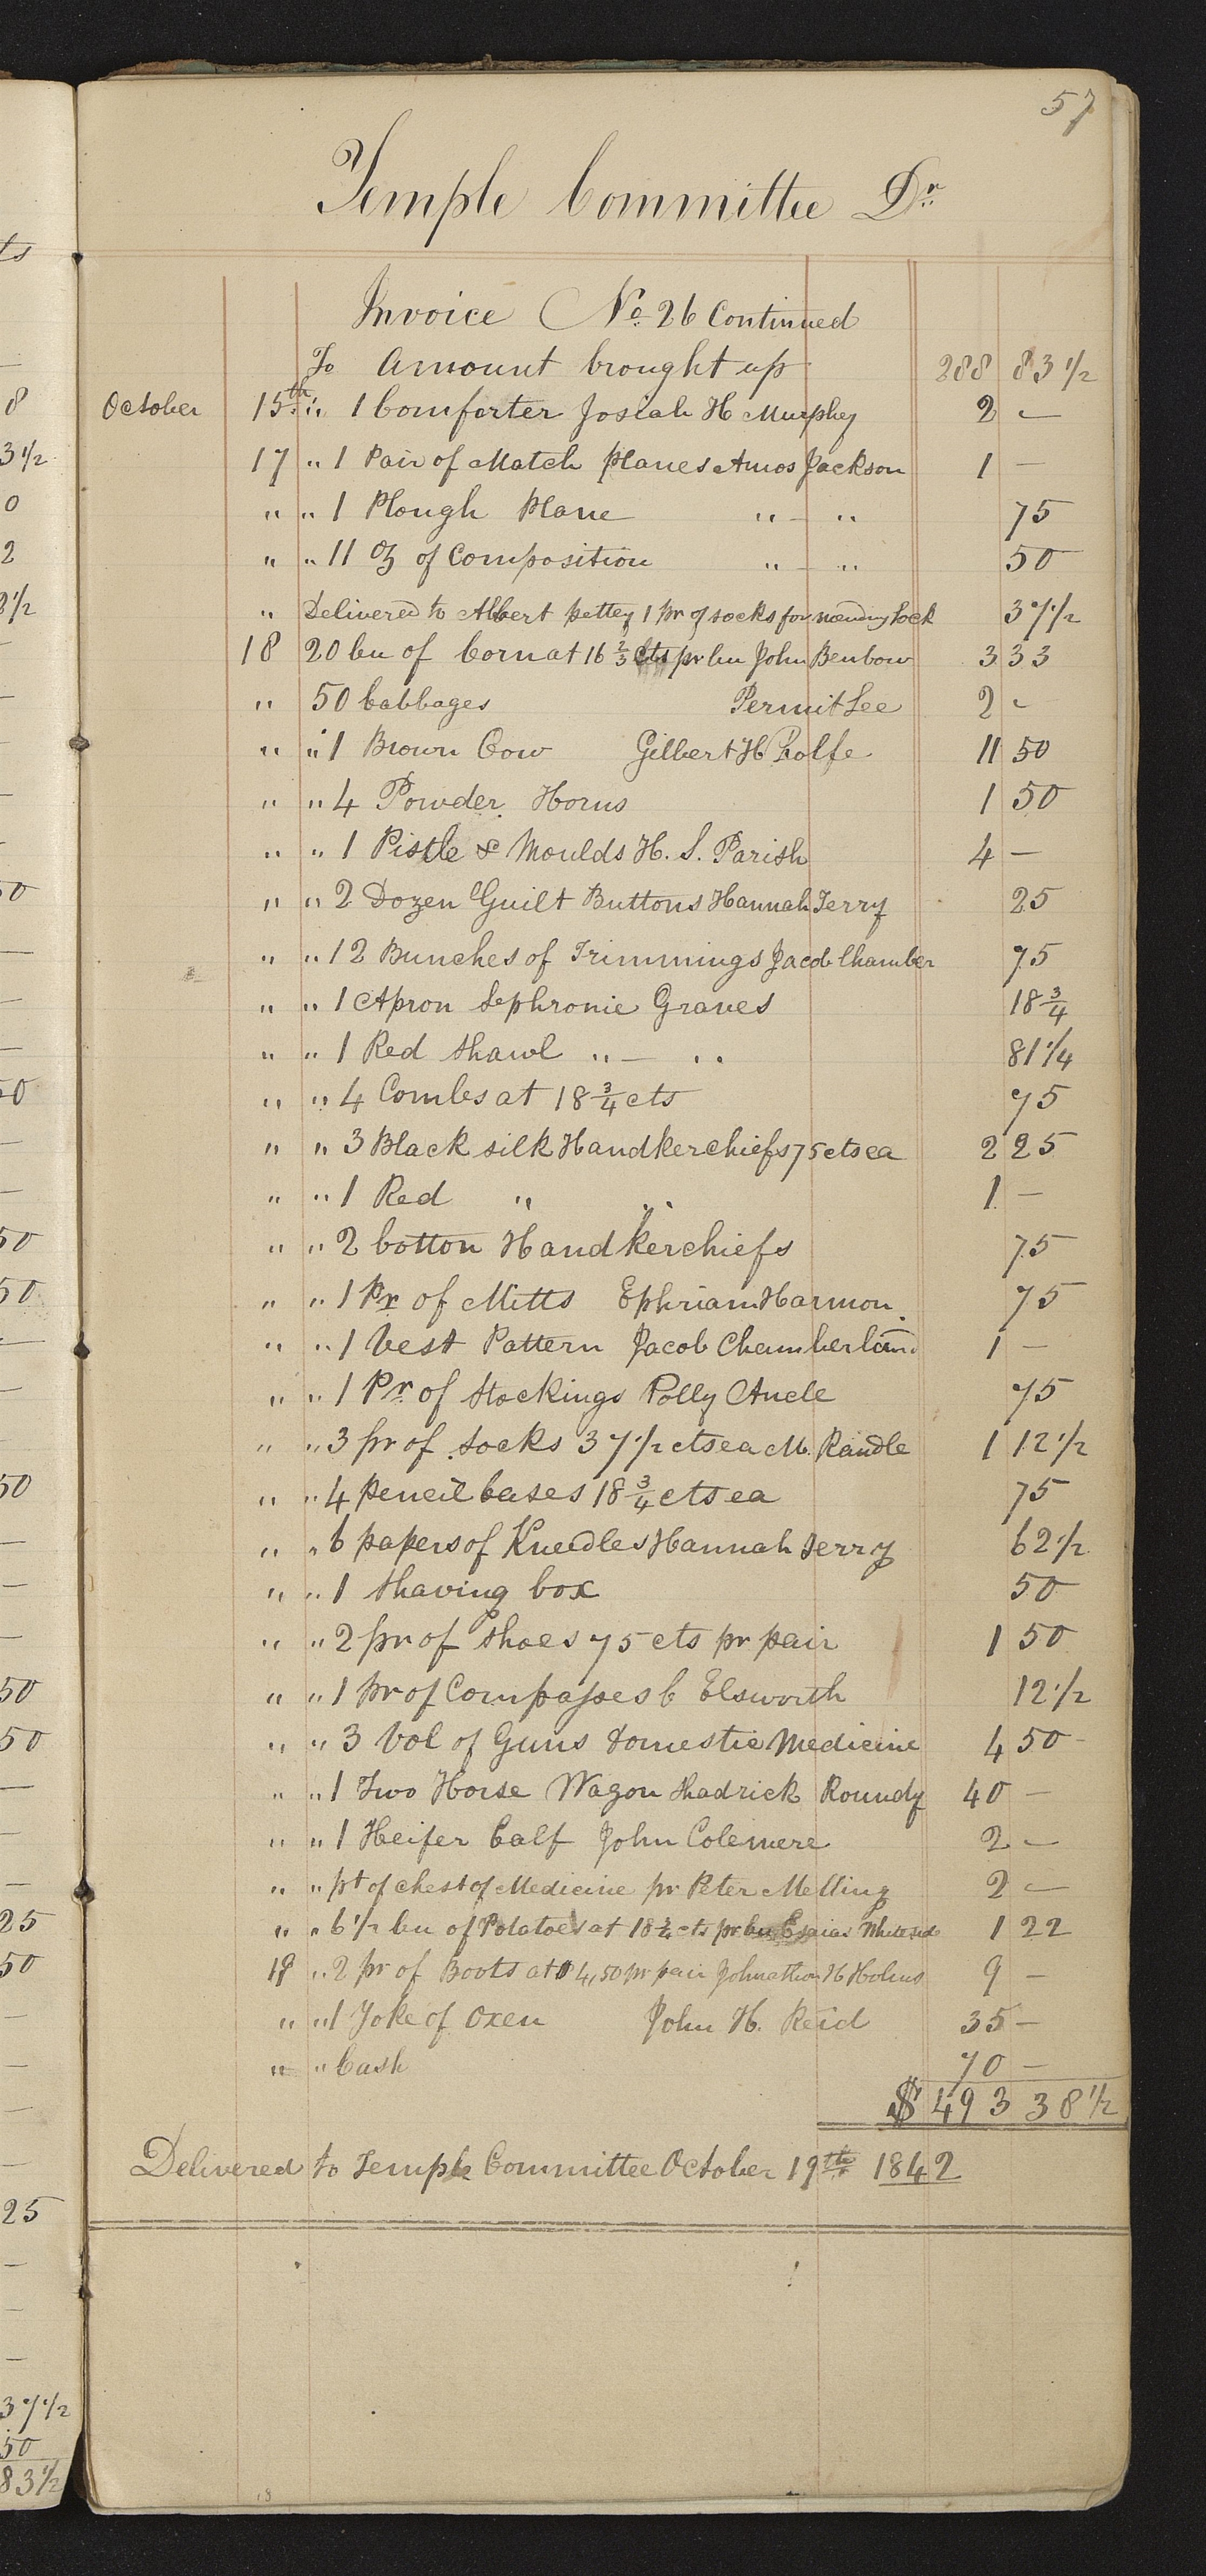 57
Temple Committee Dr
Invoice No 26 Continued
To Amount brought up 288 83 1/2
October 15th " 1 Comforter Josiah H Murphey 2 —
17 " 1 Pair of Match planes Amos Jackson 1 —
" " 1 Plough Plane " — " 75
" " 11 oz of Composition " — " 50
" Delivered to Albert pettey 1 pr of socks for mending Lock 37 1/2
18 20 bu of Corn at 16 2/3 cts pr bu John Benbow 3 33
" 50 Cabbages Permit Lee 2 -
" " 1 Brown Cow Gilbert H Rolfe 11 50
" " 4 Powder Horns 1 50
" " 1 Pistle & Moulds H. S. Parish 4 —
" " 2 Dozen Guilt Buttons Hannah Terry 25
" " 12 Bunches of Trimmings Jacob Chamber 75
" " 1 Apron Sephronie Graves 18 3/4
" " 1 Red Shawl " — " 81 1/4
" " 4 Combs at 18 3/4 cts 75
" " 3 Black silk Handkerchiefs 75 cts ea 2 25
" " 1 Red " " 1 —
" " 2 Cotton Handkerchiefs 75
" " 1 Pr of Mitts Ephriam Harmon 75
" " 1 Vest Pattern Jacob Chamberland 1 —
" " 1 Pr of Stockings Polly 75
" " 3 pr of socks 37 1/2 cts ea M. Randle 1 12 1/2
" " 4 pencil Cases 18 3/4 cts ea 75
" " 6 papers of Kneedles Hannah Terry 62 1/2
" " 1 Shaving box 50
" " 2 pr of Shoes 75 cts pr pair 1 50
" " 1 pr of Compasses C Elsworth 12 1/2
" " 3 Vol of Guns domestic Medicine 4 50
" " 1 Two Horse Wagon Shadrick Roundy 40 —
" " 1 Heifer Calf John Colemere 2 —
" " pt of chest of Medicine pr Peter Melling 2 —
" " 6 1/2 bu of Potatoes at 18 3/4 cts pr bu 1 22
19 " 2 pr of Boots at 4,50 pr pair Johnathan H Holms 9 —
" " 1 Yoke of Oxen John H. Reid 35 —
" " Cash 70 —
$ 493 38 1/2
Delivered to Temple Committee October 19th 1842